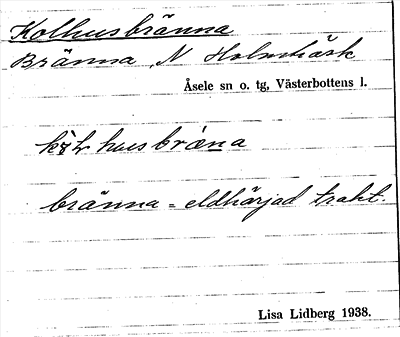 Kolhusbränna
Bränna, N Holmträsk
Åsele sn o. tg, Västerbottens l.
brän̄a
bränna = eldhärjad trakt.
Lisa Lidberg 1938.